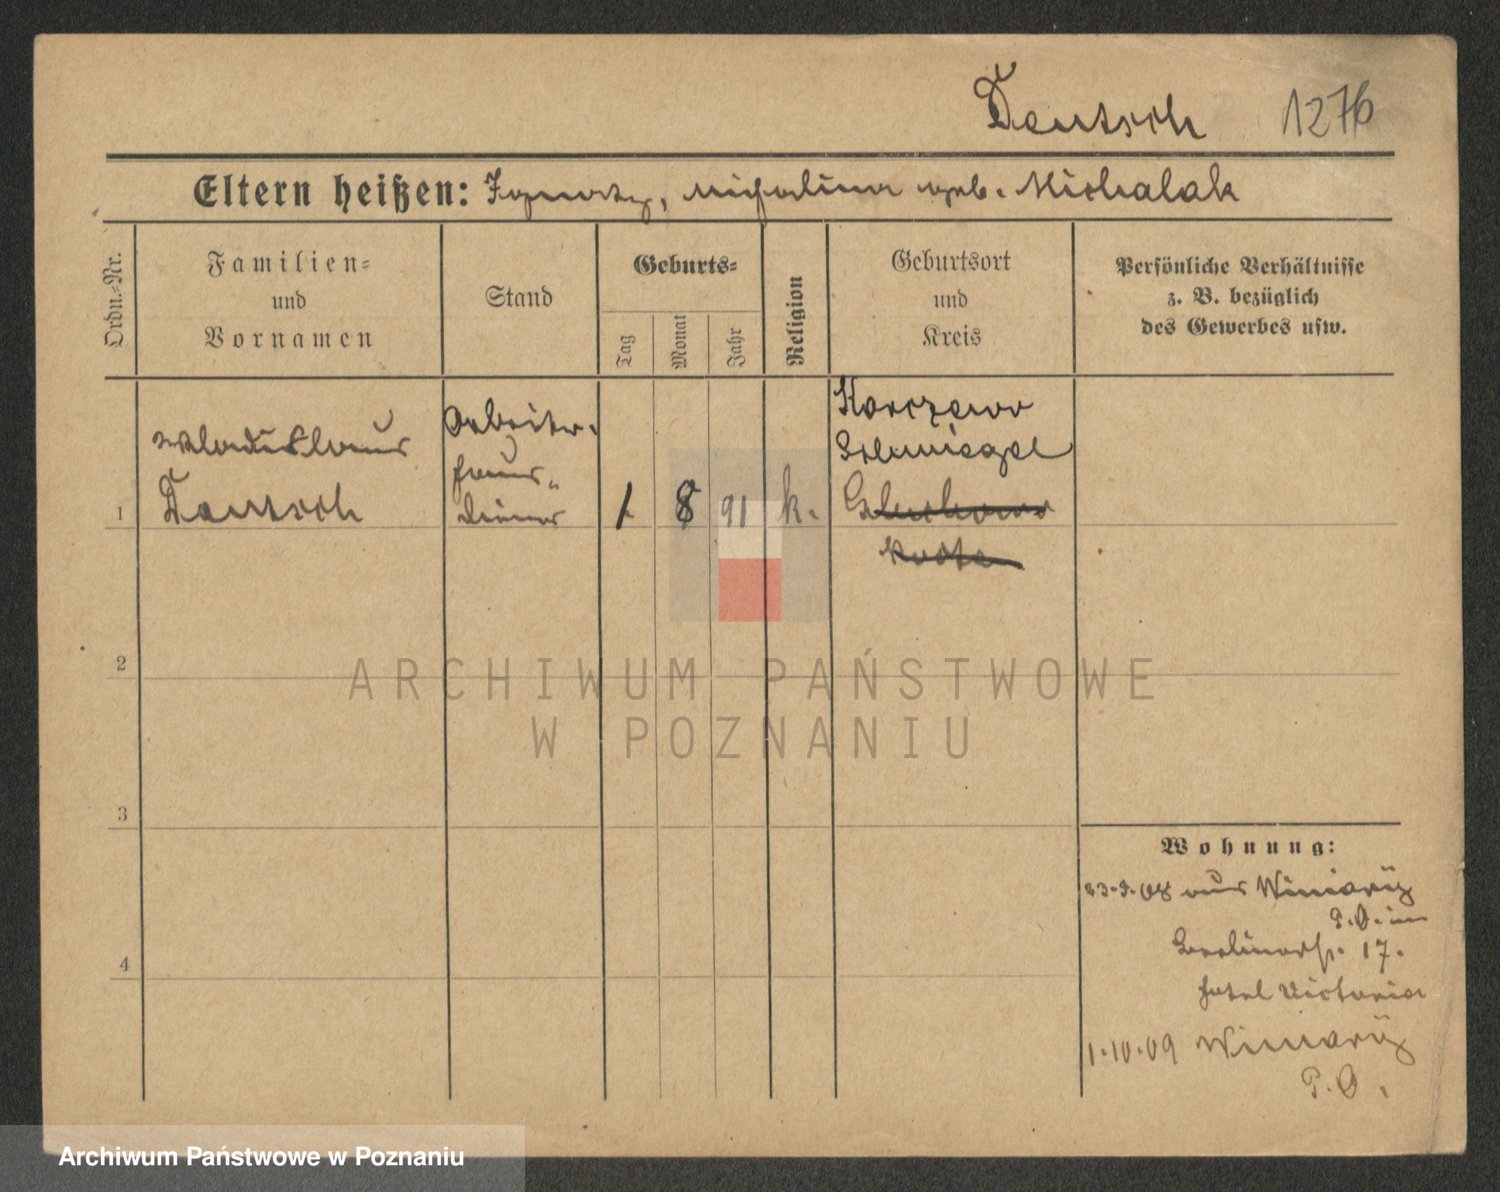 Deutsch 1276
Eltern heißen: Ignatz, Michalina geb. Michalak
Ordn.-Nr.
Familien-
und
Vornamen
Stand
Geburts-
Tag
Monat
Jahr
Religion
Geburtsort
und
Kreis
Persönliche Verhältnisse
z. B. bezüglich
des Gewerbes usw.
1
Wladislaus
Deutsch
Arbeiter.
Haus-
diener
1 8 91 k.
Karczewo
Schmiegel
Gluchowo
Kosten
2
3
4
Wohnung:
23.9.08 aus Winiary
P. O. in
Berlinerstr. 17.
Hotel Victoria
1.10.09 Winiary
P. O.
ARCHIWUM PAŃSTWOWE
W POZNANIU
Archiwum Państwowe w Poznaniu